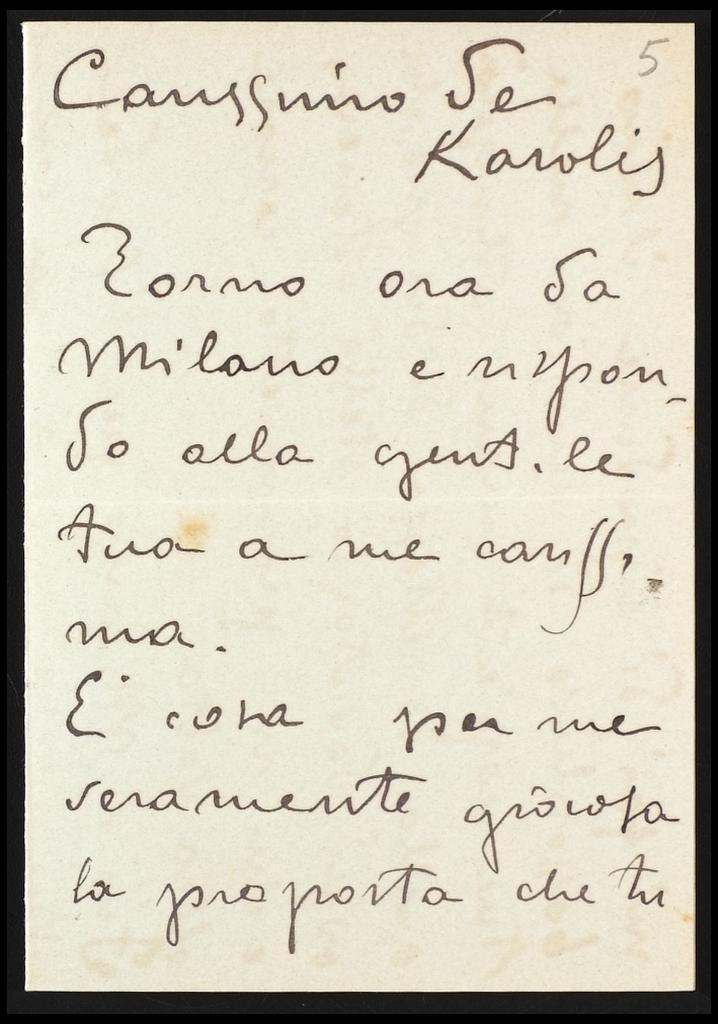 5
Carissimo de
Karolis
Torno ora da
Milano e rispon-
do alla gentile
tua a me carissi-
ma.
E' cosa per me
veramente giocosa
la proposta che tu